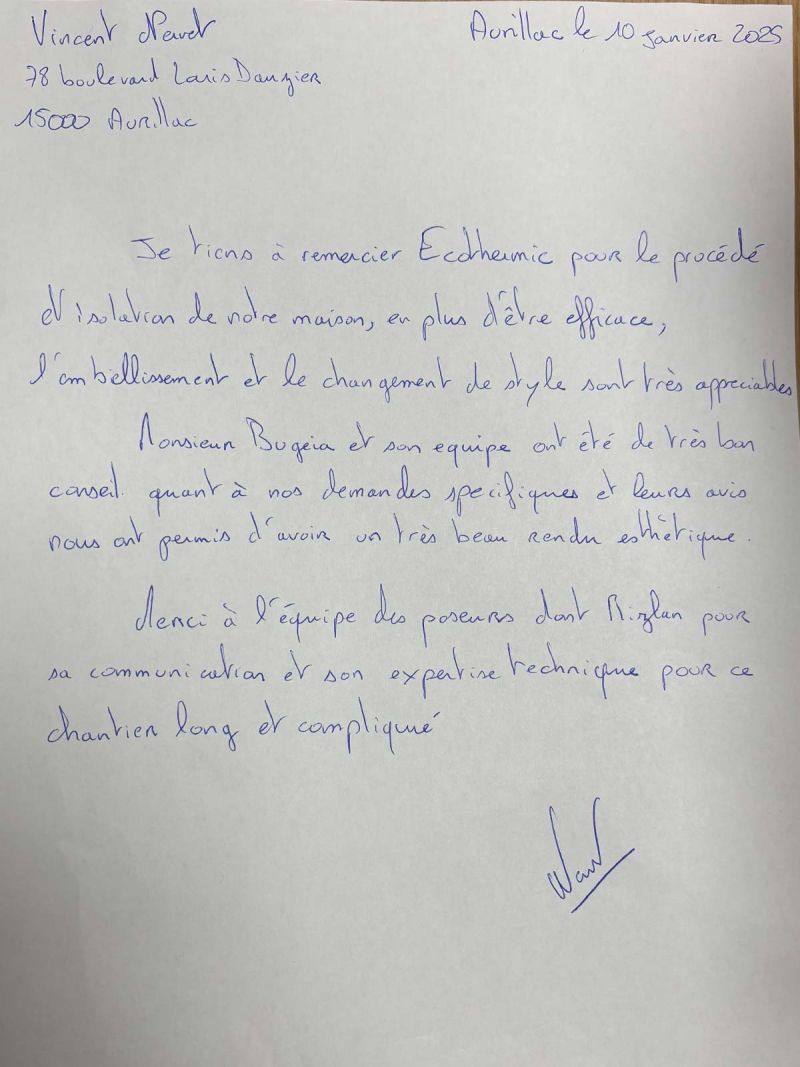 Vincent Navet
Aurillac le 10 janvier 2025
78 boulevard Louis Dauzier
15000 Aurillac
Je tiens à remercier Ecothermic pour le procédé
d'isolation de notre maison, en plus d'être efficace,
l'embellissement et le changement de style sont très appreciables
Monsieur Bugeia et son equipe ont été de très bon
conseil quant à nos demandes specifiques et leurs avis
nous ont permis d'avoir un très beau rendu esthètique.
Merci à l'équipe des poseurs dont Rizlan pour
sa communication et son expertise technique pour ce
chantier long et compliqué